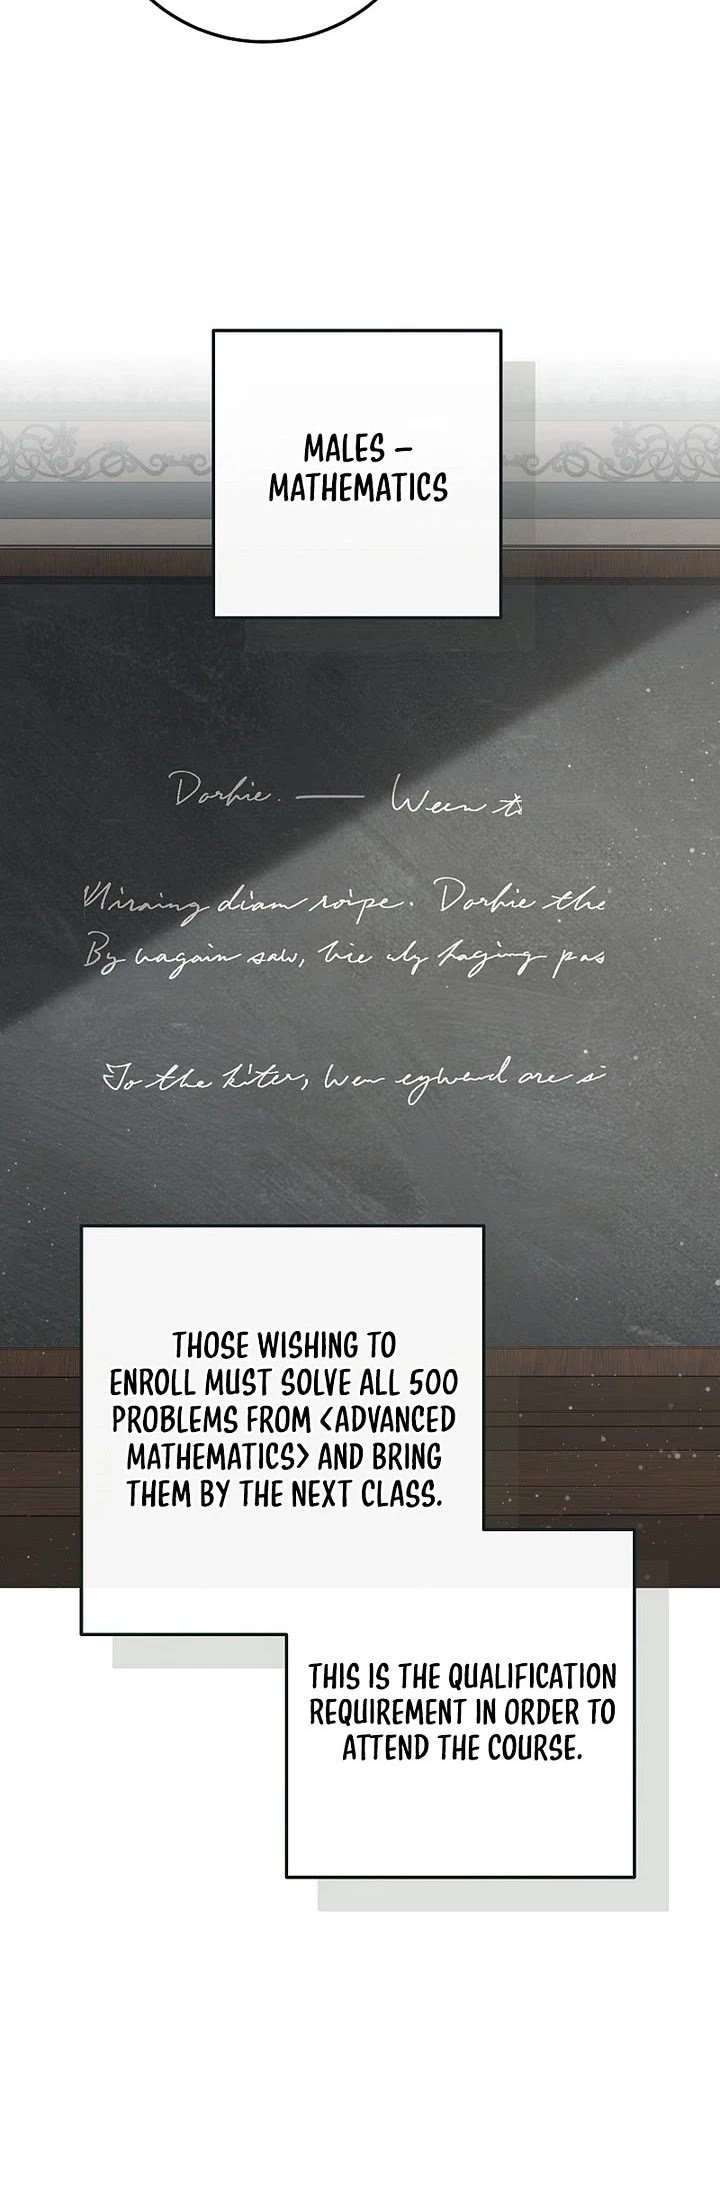 MALES –
MATHEMATICS
Dorhie. — Ween
diam roipe. Dorhie the
By saw,
To the kiter, are
THOSE WISHING TO
ENROLL MUST SOLVE ALL 500
PROBLEMS FROM <ADVANCED
MATHEMATICS> AND BRING
THEM BY THE NEXT CLASS.
THIS IS THE QUALIFICATION
REQUIREMENT IN ORDER TO
ATTEND THE COURSE.